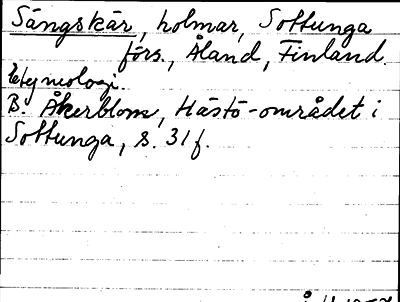 Sängskär, holmar, Sottunga
förs., Åland, Finland.
Etymologi.
B. Åkerblom, Hästö-området i
Sottunga, s. 31 f.